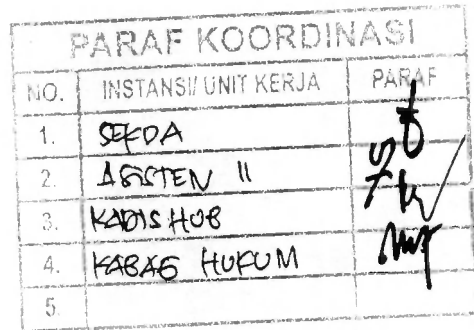 PARAF KOORDINASI
NO. INSTANSI/ UNIT KERJA PARAF
1. SEKDA
2. ASISTEN II
3. KADISHUB
4. KABAG HUKUM
5.